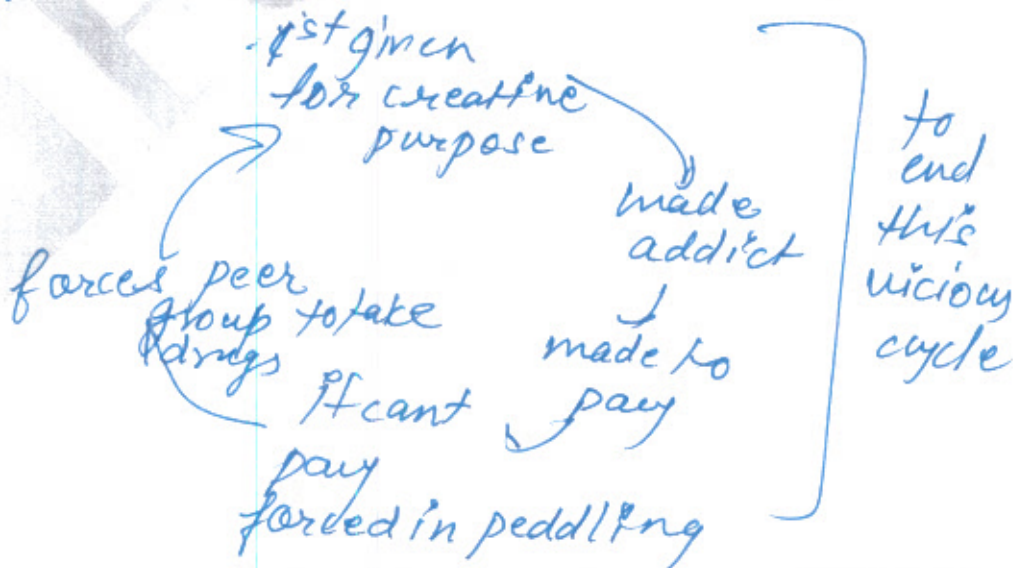 1st given
for creative
purpose
made
addict
made to
pay
if cant
pay
forced in peddling
forces peer
group to take
drugs
to
end
this
vicious
cycle